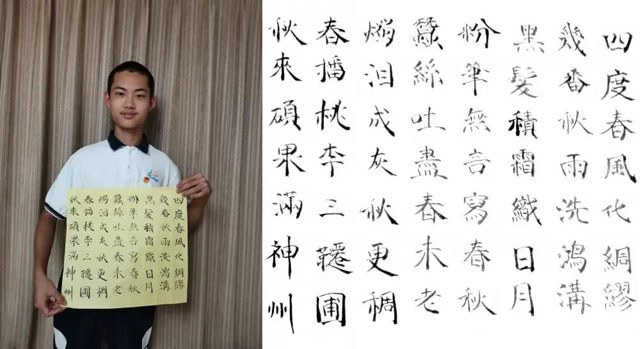 四度春風化綢繆
幾番秋雨洗鴻溝
黑髮積霜織日月
粉筆無言寫春秋
蠶絲吐盡春未老
燭泪成灰秋更稠
春播桃李三韆圃
秋來碩果滿神州
四度春風化綢繆
幾番秋雨洗鴻溝
黑髮積霜織日月
粉筆無言寫春秋
蠶絲吐盡春未老
燭泪成灰秋更稠
春播桃李三韆圃
秋來碩果滿神州